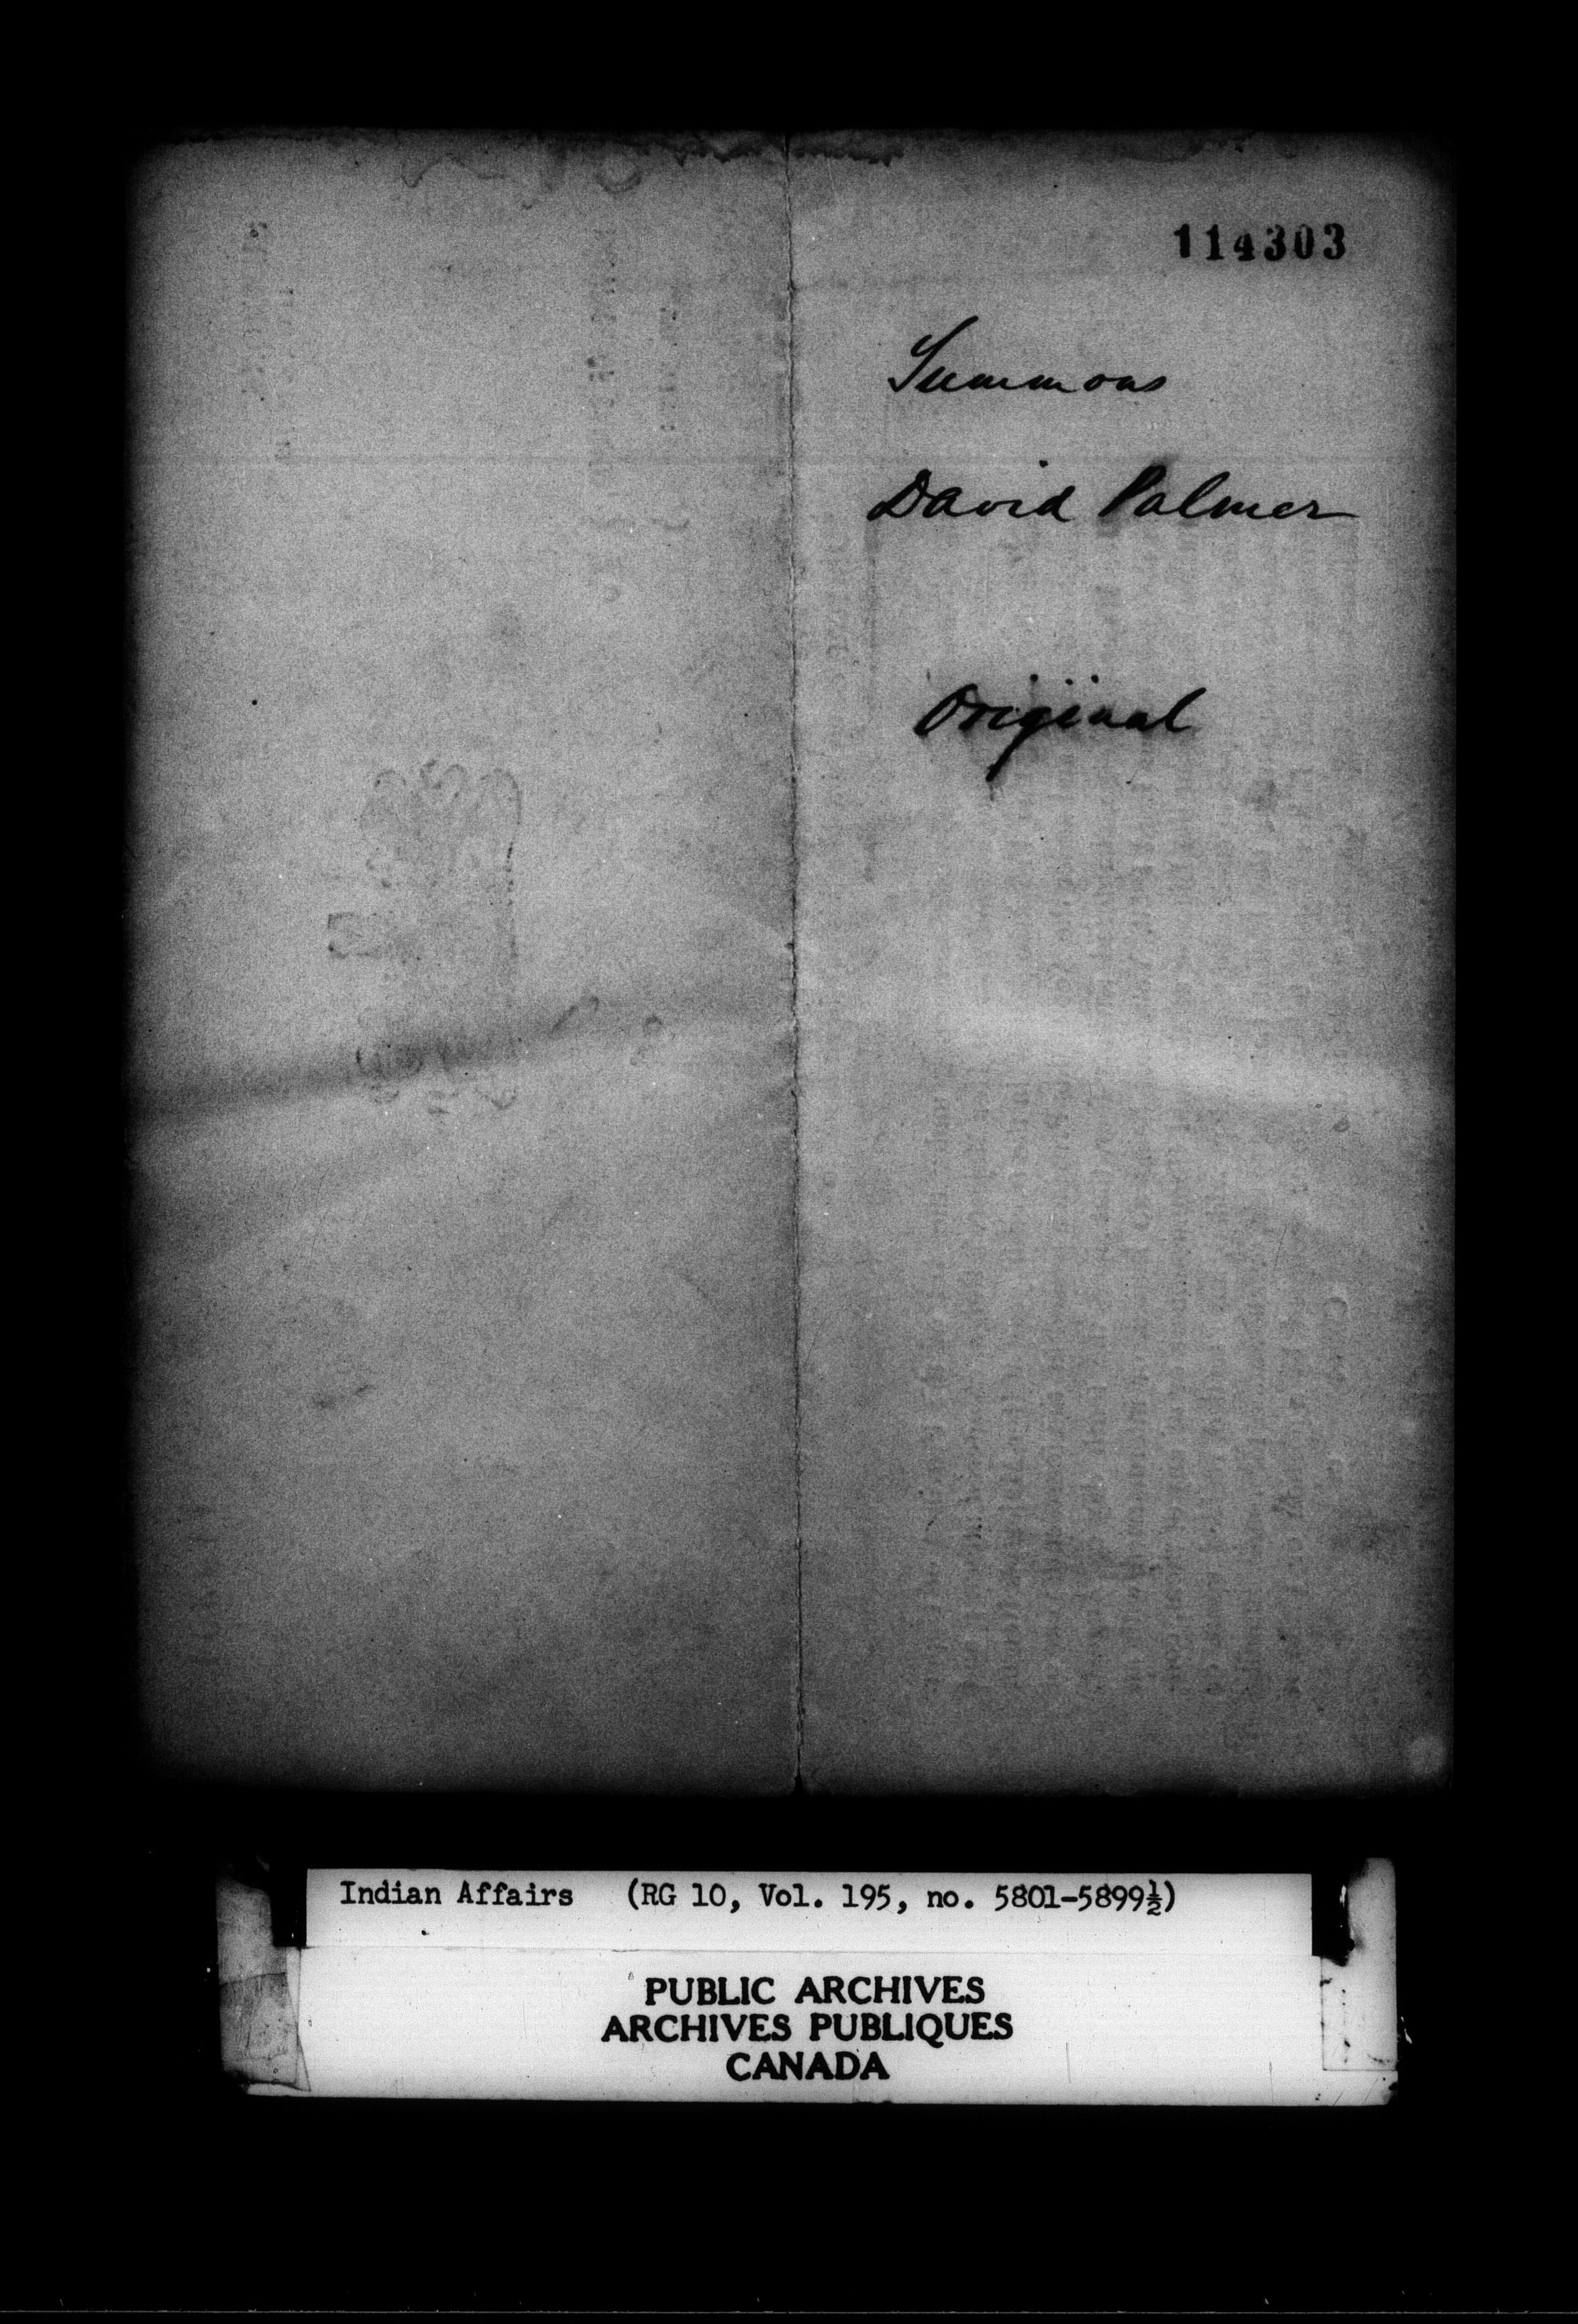 114303
Summons
David Palmer
Original
Indian Affairs (RG 10, Vol. 195, no. 5801-5899½)
PUBLIC ARCHIVES
ARCHIVES PUBLIQUES
CANADA